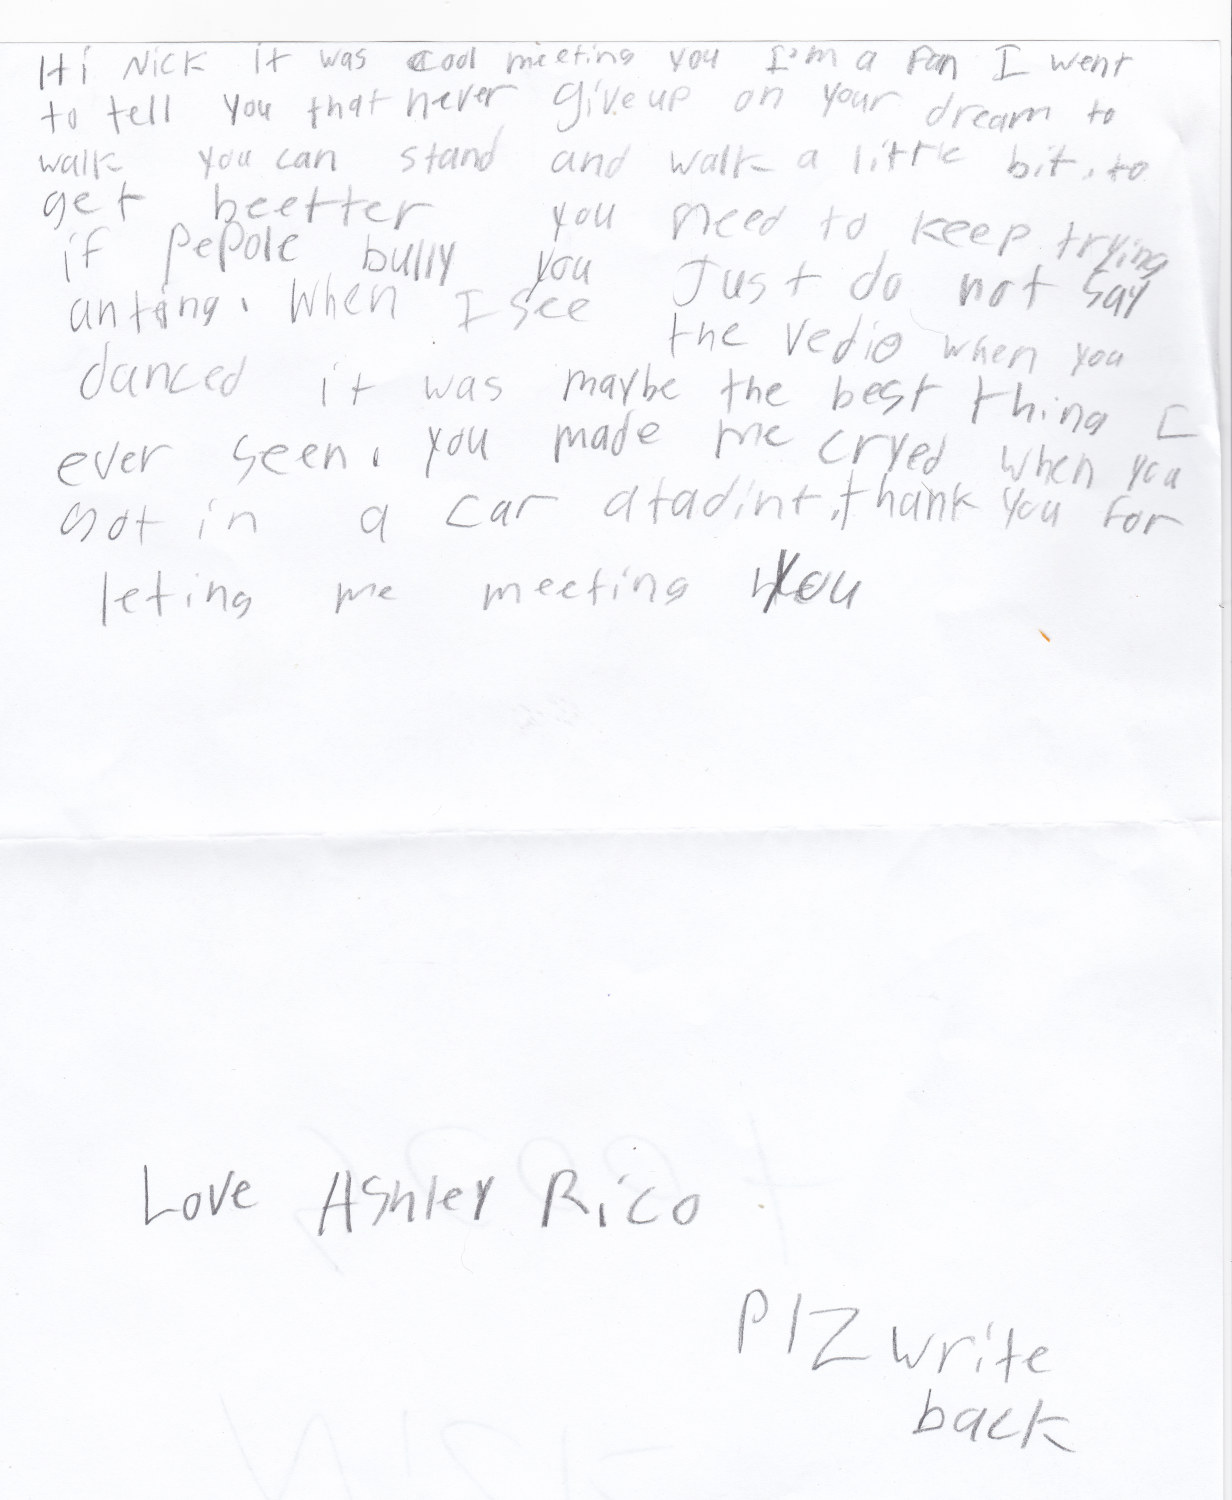 Hi Nick it was cool meeting you I'm a fan I went
to tell you that never giveup on your dream to
walk you can stand and walk a little bit. to
get beetter you need to keep trying
if pepole bully you Just do not say
anting. When I see the vedio when you
danced it was maybe the best thing I
ever seen. you made me cryed when you
got in a car atadint. thank you for
leting me meeting you
Love Ashley Rico
Plz write
back